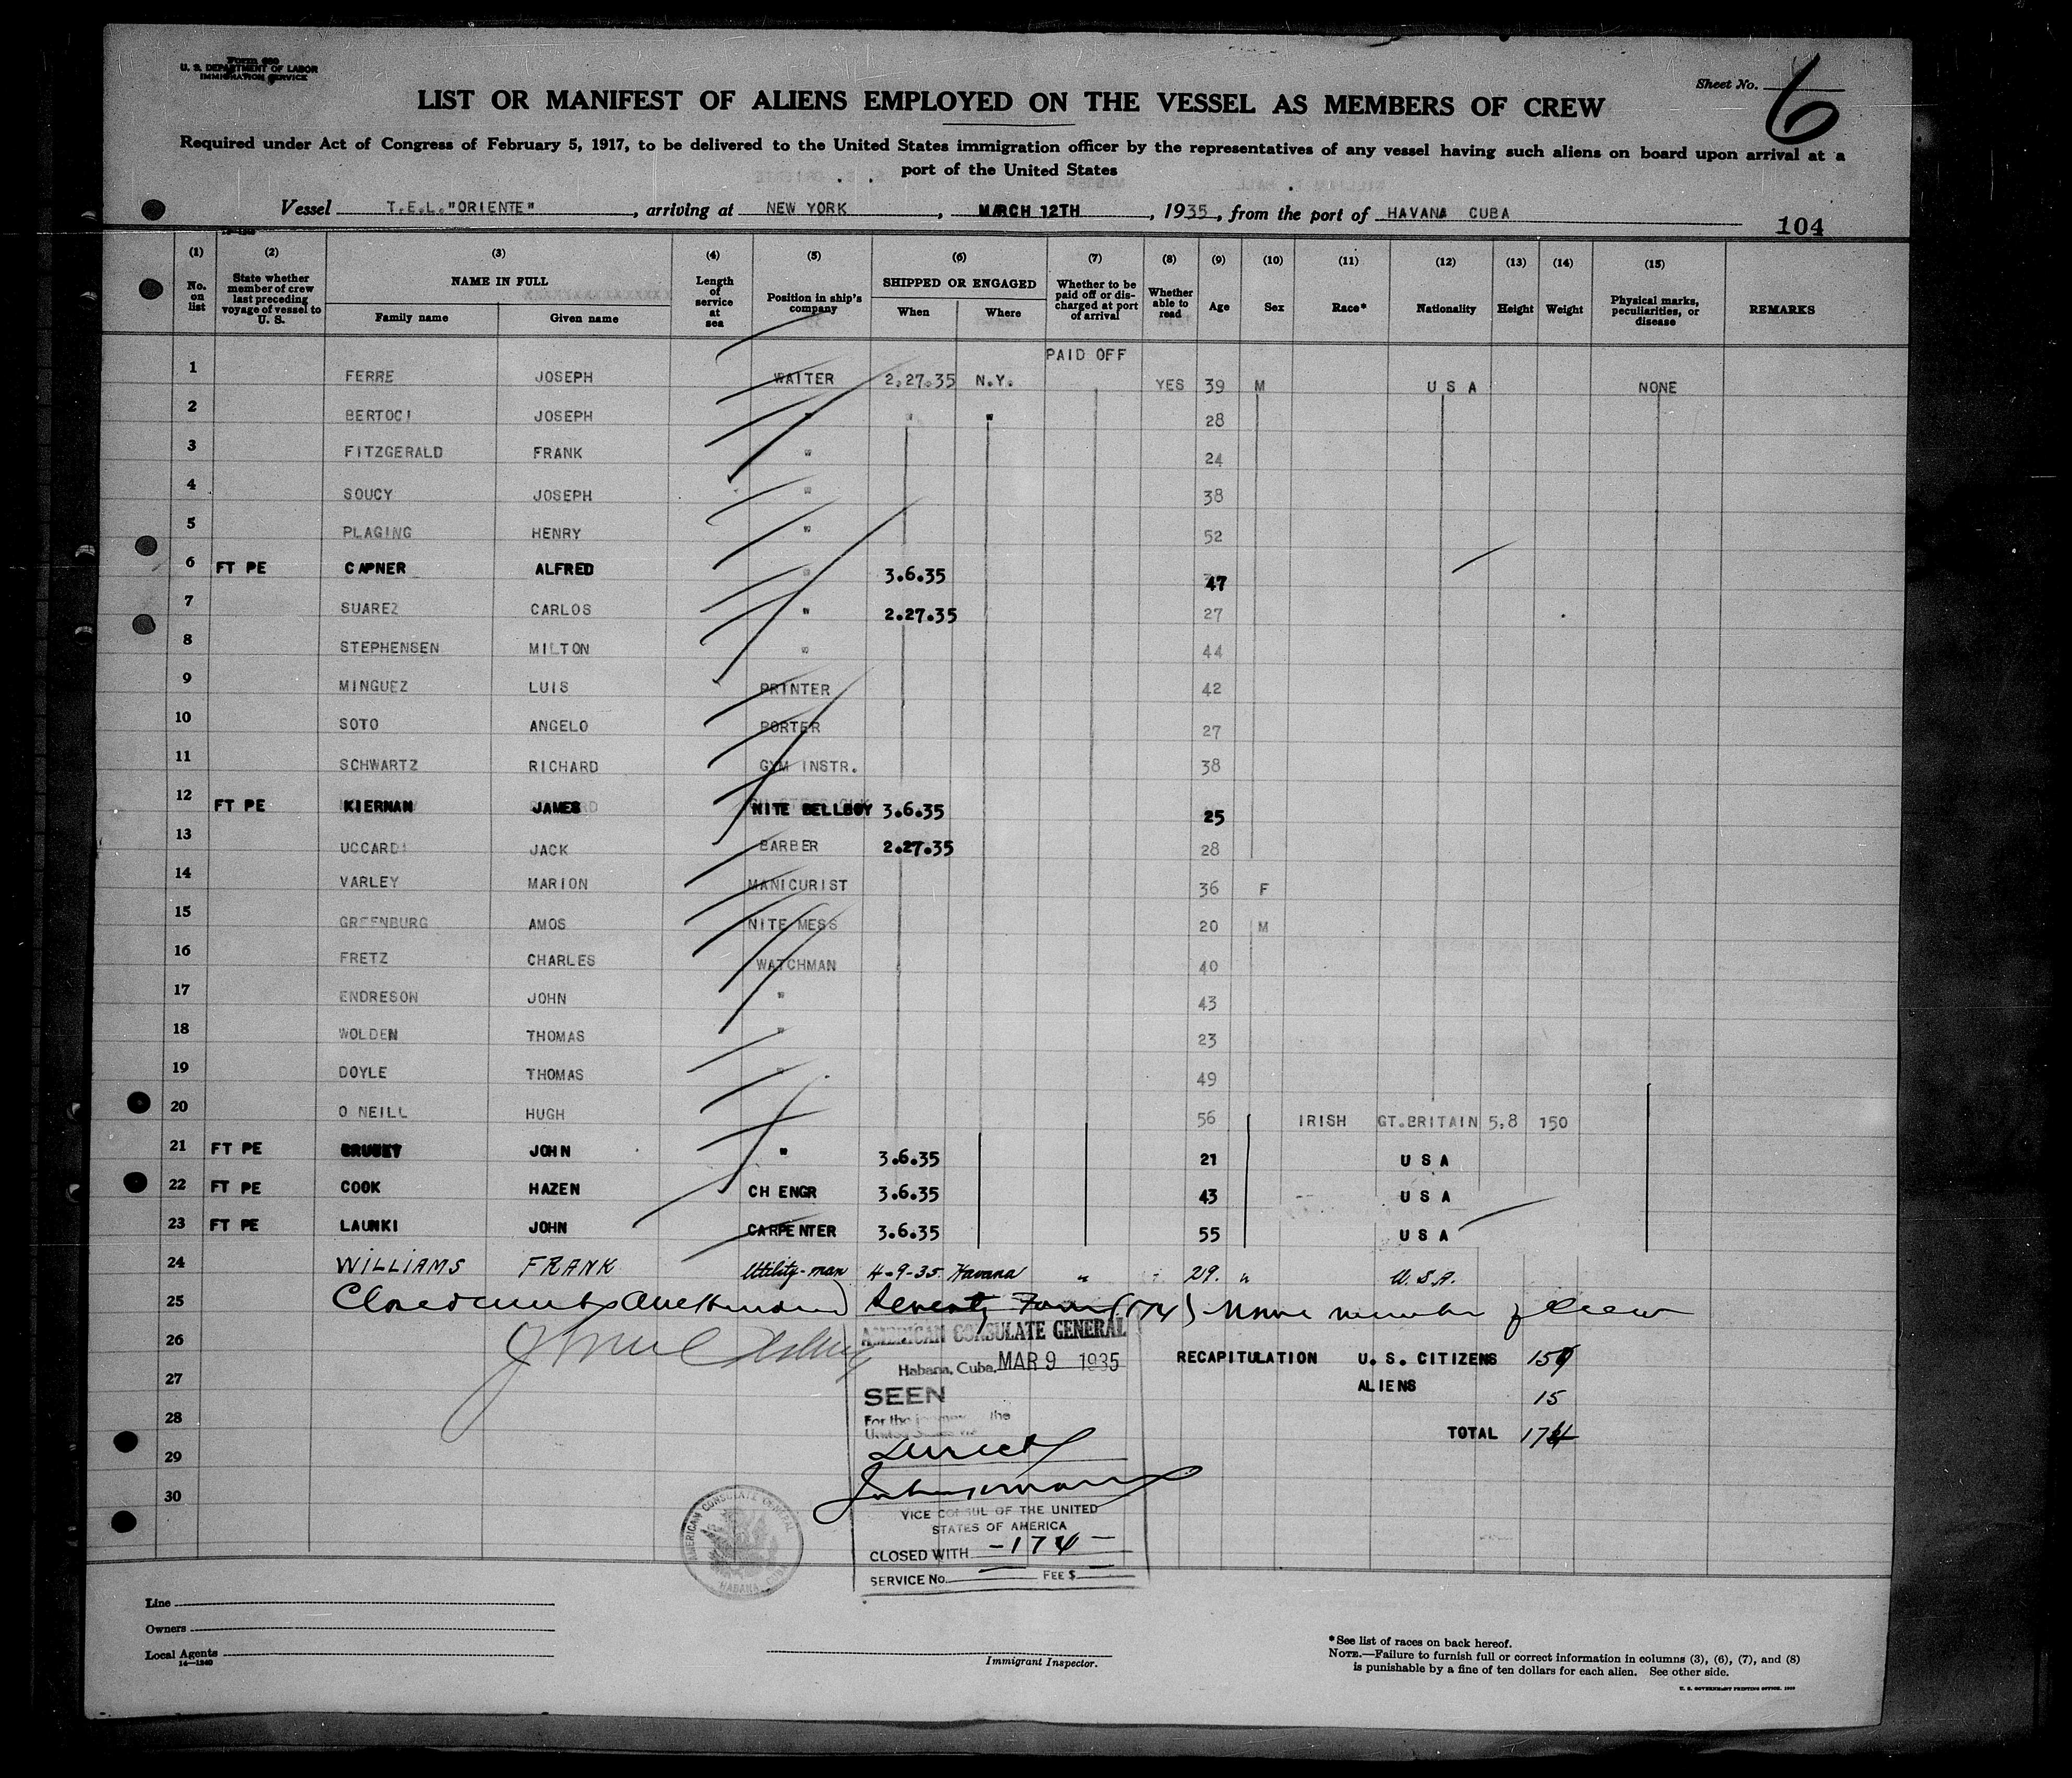 Form 689
U. S. DEPARTMENT OF LABOR
IMMIGRATION SERVICE
Sheet No. 6
LIST OR MANIFEST OF ALIENS EMPLOYED ON THE VESSEL AS MEMBERS OF CREW
Required under Act of Congress of February 5, 1917, to be delivered to the United States immigration officer by the representatives of any vessel having such aliens on board upon arrival at a
port of the United States
Vessel T.E.L."ORIENTE", arriving at NEW YORK, MARCH 12TH, 1935, from the port of HAVANA CUBA
104
(1) (2) (3) (4) (5) (6) (7) (8) (9) (10) (11) (12) (13) (14) (15)
No. on list State whether member of crew last preceding voyage of vessel to U. S. NAME IN FULL Family name Given name Length of service at sea Position in ship's company SHIPPED OR ENGAGED When Where Whether to be paid off or discharged at port of arrival Whether able to read Age Sex Race* Nationality Height Weight Physical marks, peculiarities, or disease REMARKS
PAID OFF
1 FERRE JOSEPH WAITER 2.27.35 N.Y. YES 39 M U S A NONE
2 BERTOCI JOSEPH " " " 28
3 FITZGERALD FRANK " 24
4 SOUCY JOSEPH " 38
5 PLAGING HENRY " 52
6 FT PE CAPNER ALFRED " 3.6.35 47
7 SUAREZ CARLOS " 2.27.35 27
8 STEPHENSEN MILTON " 44
9 MINGUEZ LUIS PRINTER 42
10 SOTO ANGELO PORTER 27
11 SCHWARTZ RICHARD GYM INSTR. 38
12 FT PE KIERNAN JAMES NITE BELLBOY 3.6.35 25
13 UCCARDI JACK BARBER 2.27.35 28
14 VARLEY MARION MANICURIST 36 F
15 GREENBURG AMOS NITE MESS 20 M
16 FRETZ CHARLES WATCHMAN 40
17 ENDRESON JOHN " 43
18 WOLDEN THOMAS " 23
19 DOYLE THOMAS " 49
20 O NEILL HUGH 56 IRISH GT.BRITAIN 5.8 150
21 FT PE JOHN " 3.6.35 21 U S A
22 FT PE COOK HAZEN CH ENGR 3.6.35 43 U S A
23 FT PE LAUNKI JOHN CARPENTER 3.6.35 55 U S A
24 WILLIAMS FRANK Utility-man 4-9-35 Havana " 29. " U.S.A.
25 Seventy Four (174) member of crew
26
27
28
29
30
AMERICAN CONSULATE GENERAL
Habana, Cuba, MAR 9 1935
SEEN
For the journey the
United States via
Direct
VICE CONSUL OF THE UNITED
STATES OF AMERICA
CLOSED WITH -174-
SERVICE No. FEE $
RECAPITULATION U. S. CITIZENS 159
ALIENS 15
TOTAL 174
AMERICAN CONSULATE GENERAL HABANA, CUBA
Line
Owners
Local Agents
14—1240
Immigrant Inspector.
*See list of races on back hereof.
NOTE.—Failure to furnish full or correct information in columns (3), (6), (7), and (8)
is punishable by a fine of ten dollars for each alien. See other side.
U. S. GOVERNMENT PRINTING OFFICE